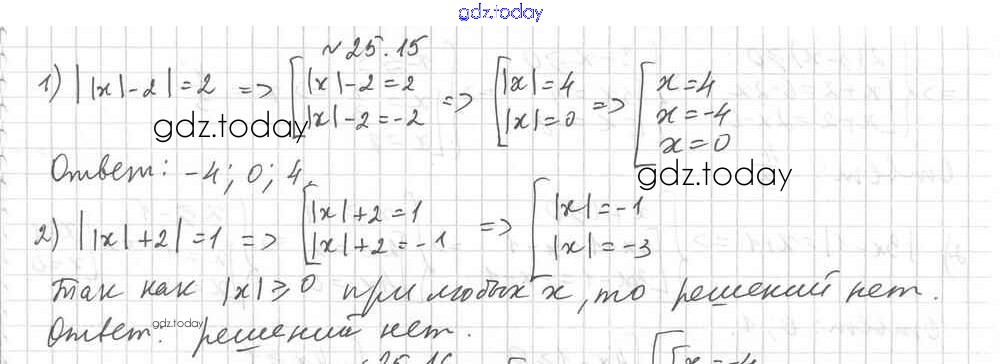 gdz.today
№25.15
1) ||x|-2|=2 => [|x|-2=2 |x|-2=-2 => [|x|=4 |x|=0 => [x=4 x=-4 x=0
gdz.today
Ответ: -4; 0; 4.
gdz.today
2) ||x|+2|=1 => [|x|+2=1 |x|+2=-1 => [|x|=-1 |x|=-3
Так как |x|⩾0 при любых x, то решений нет.
gdz.today
Ответ: решений нет.